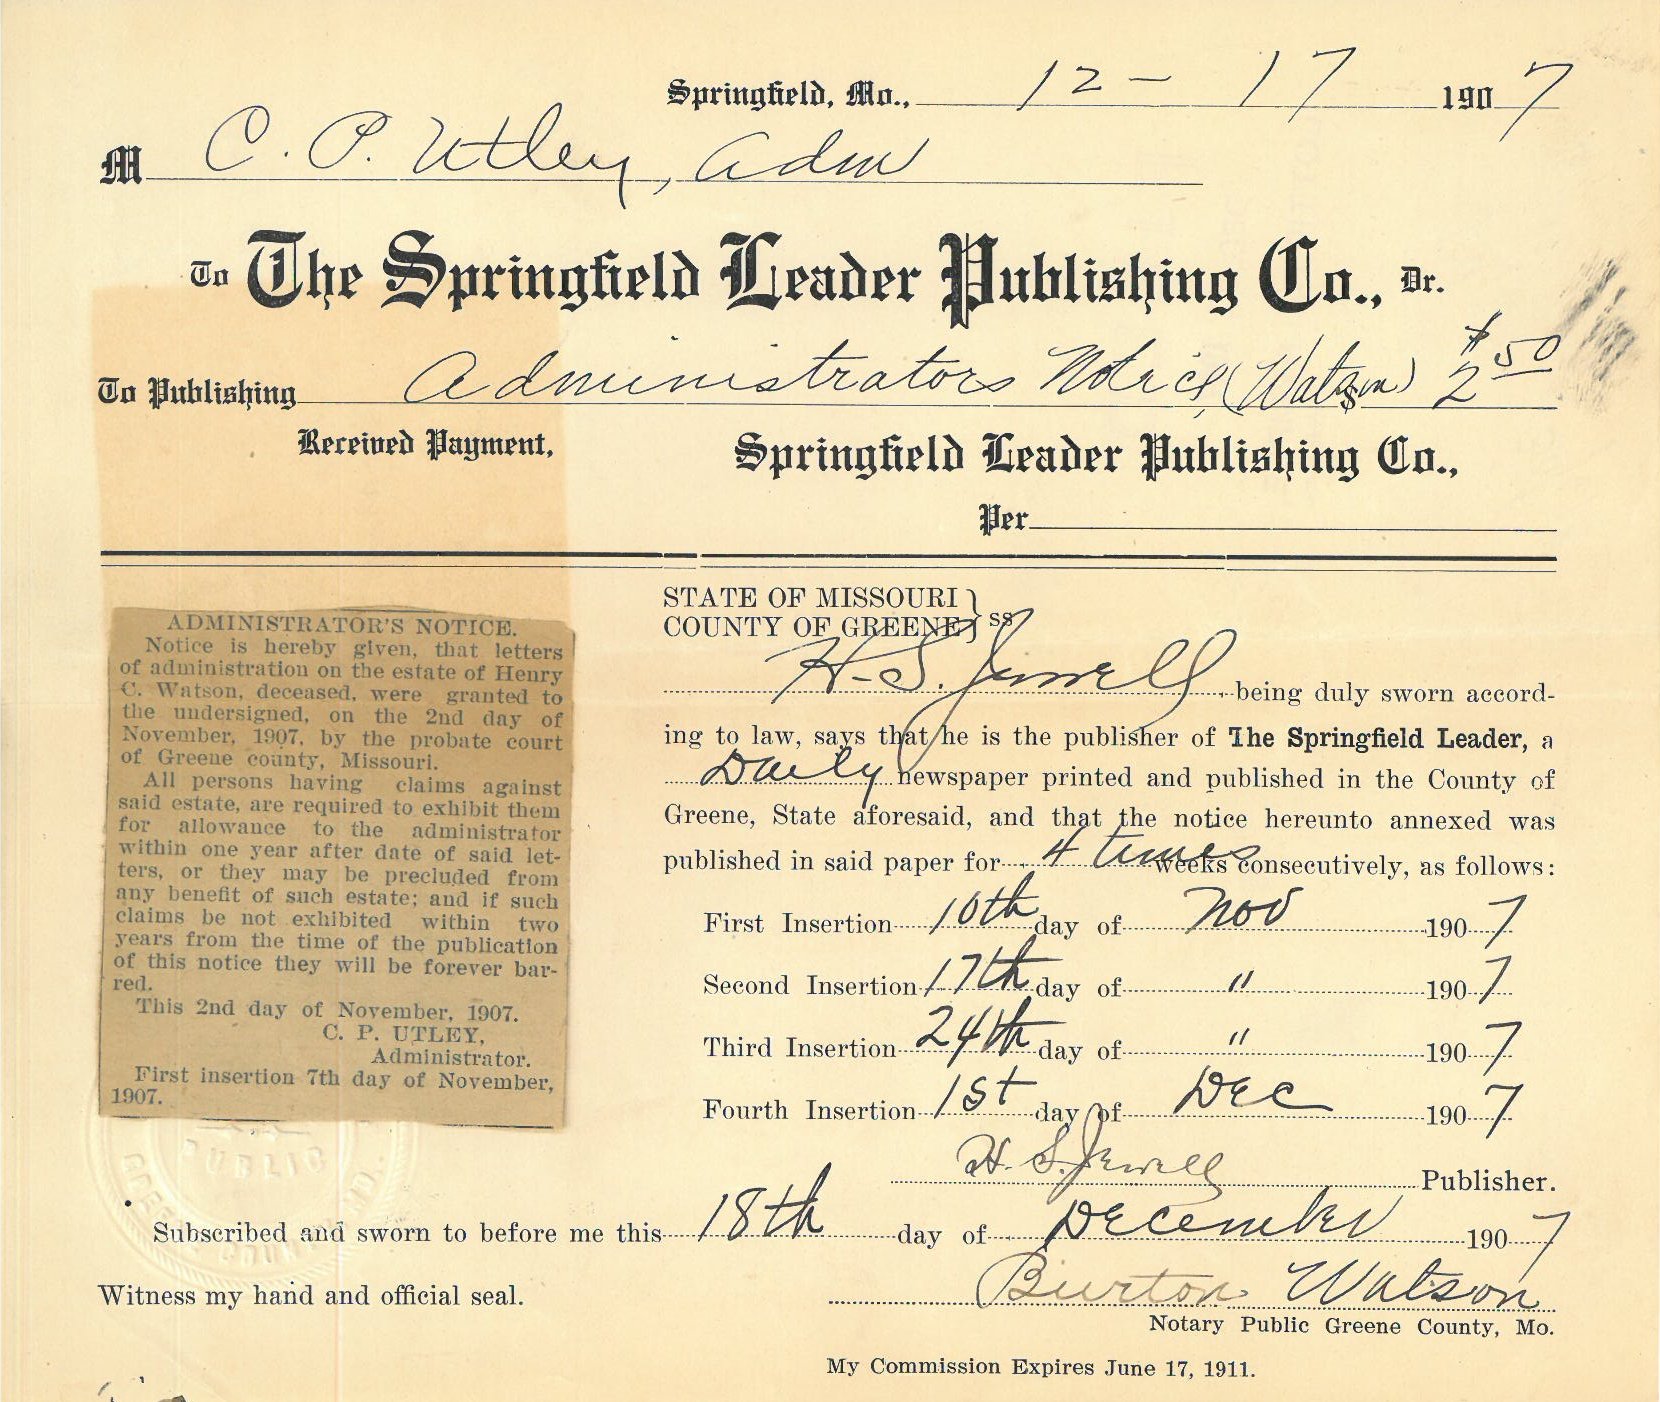 Springfield, Mo., 12 - 17 1907
M C. P. Utley, Adm
To The Springfield Leader Publishing Co., Dr.
To Publishing Administrators Notice, (Watson) $2 50
Received Payment,
Springfield Leader Publishing Co.,
Per
ADMINISTRATOR'S NOTICE.
Notice is hereby given, that letters
of administration on the estate of Henry
C. Watson, deceased, were granted to
the undersigned, on the 2nd day of
November, 1907, by the probate court
of Greene county, Missouri.
All persons having claims against
said estate, are required to exhibit them
for allowance to the administrator
within one year after date of said let-
ters, or they may be precluded from
any benefit of such estate; and if such
claims be not exhibited within two
years from the time of the publication
of this notice they will be forever bar-
red.
This 2nd day of November, 1907.
C. P. UTLEY,
Administrator.
First insertion 7th day of November,
1907.
STATE OF MISSOURI
COUNTY OF GREENE } SS
H. S. Jewell being duly sworn accord-
ing to law, says that he is the publisher of The Springfield Leader, a
Daily newspaper printed and published in the County of
Greene, State aforesaid, and that the notice hereunto annexed was
published in said paper for 4 times weeks consecutively, as follows:
First Insertion 10th day of Nov 1907
Second Insertion 17th day of " 1907
Third Insertion 24th day of " 1907
Fourth Insertion 1st day of Dec 1907
H. S. Jewell Publisher.
Subscribed and sworn to before me this 18th day of December 1907
Witness my hand and official seal.
Burton Watson
Notary Public Greene County, Mo.
My Commission Expires June 17, 1911.
PUBLIC